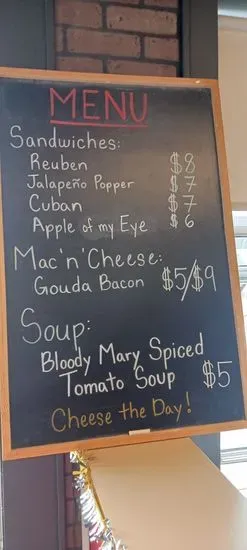 MENU
Sandwiches:
Reuben $8
Jalapeño Popper $7
Cuban $7
Apple of my Eye $6
Mac'n'Cheese:
Gouda Bacon $5/$9
Soup:
Bloody Mary Spiced
Tomato Soup $5
Cheese the Day!